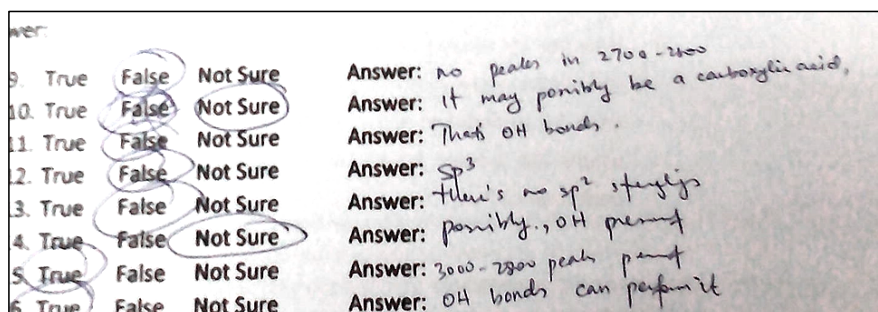 wer:
9. True False Not Sure Answer: no peaks in 2700-2800
10. True False Not Sure Answer: It may possibly be a carboxylic acid.
11. True False Not Sure Answer: That's OH bonds.
12. True False Not Sure Answer: sp³
13. True False Not Sure Answer: there's no sp²
4. True False Not Sure Answer: possibly, OH present
5. True False Not Sure Answer: 3000-2800 peaks present
6. True False Not Sure Answer: OH bonds can perform it